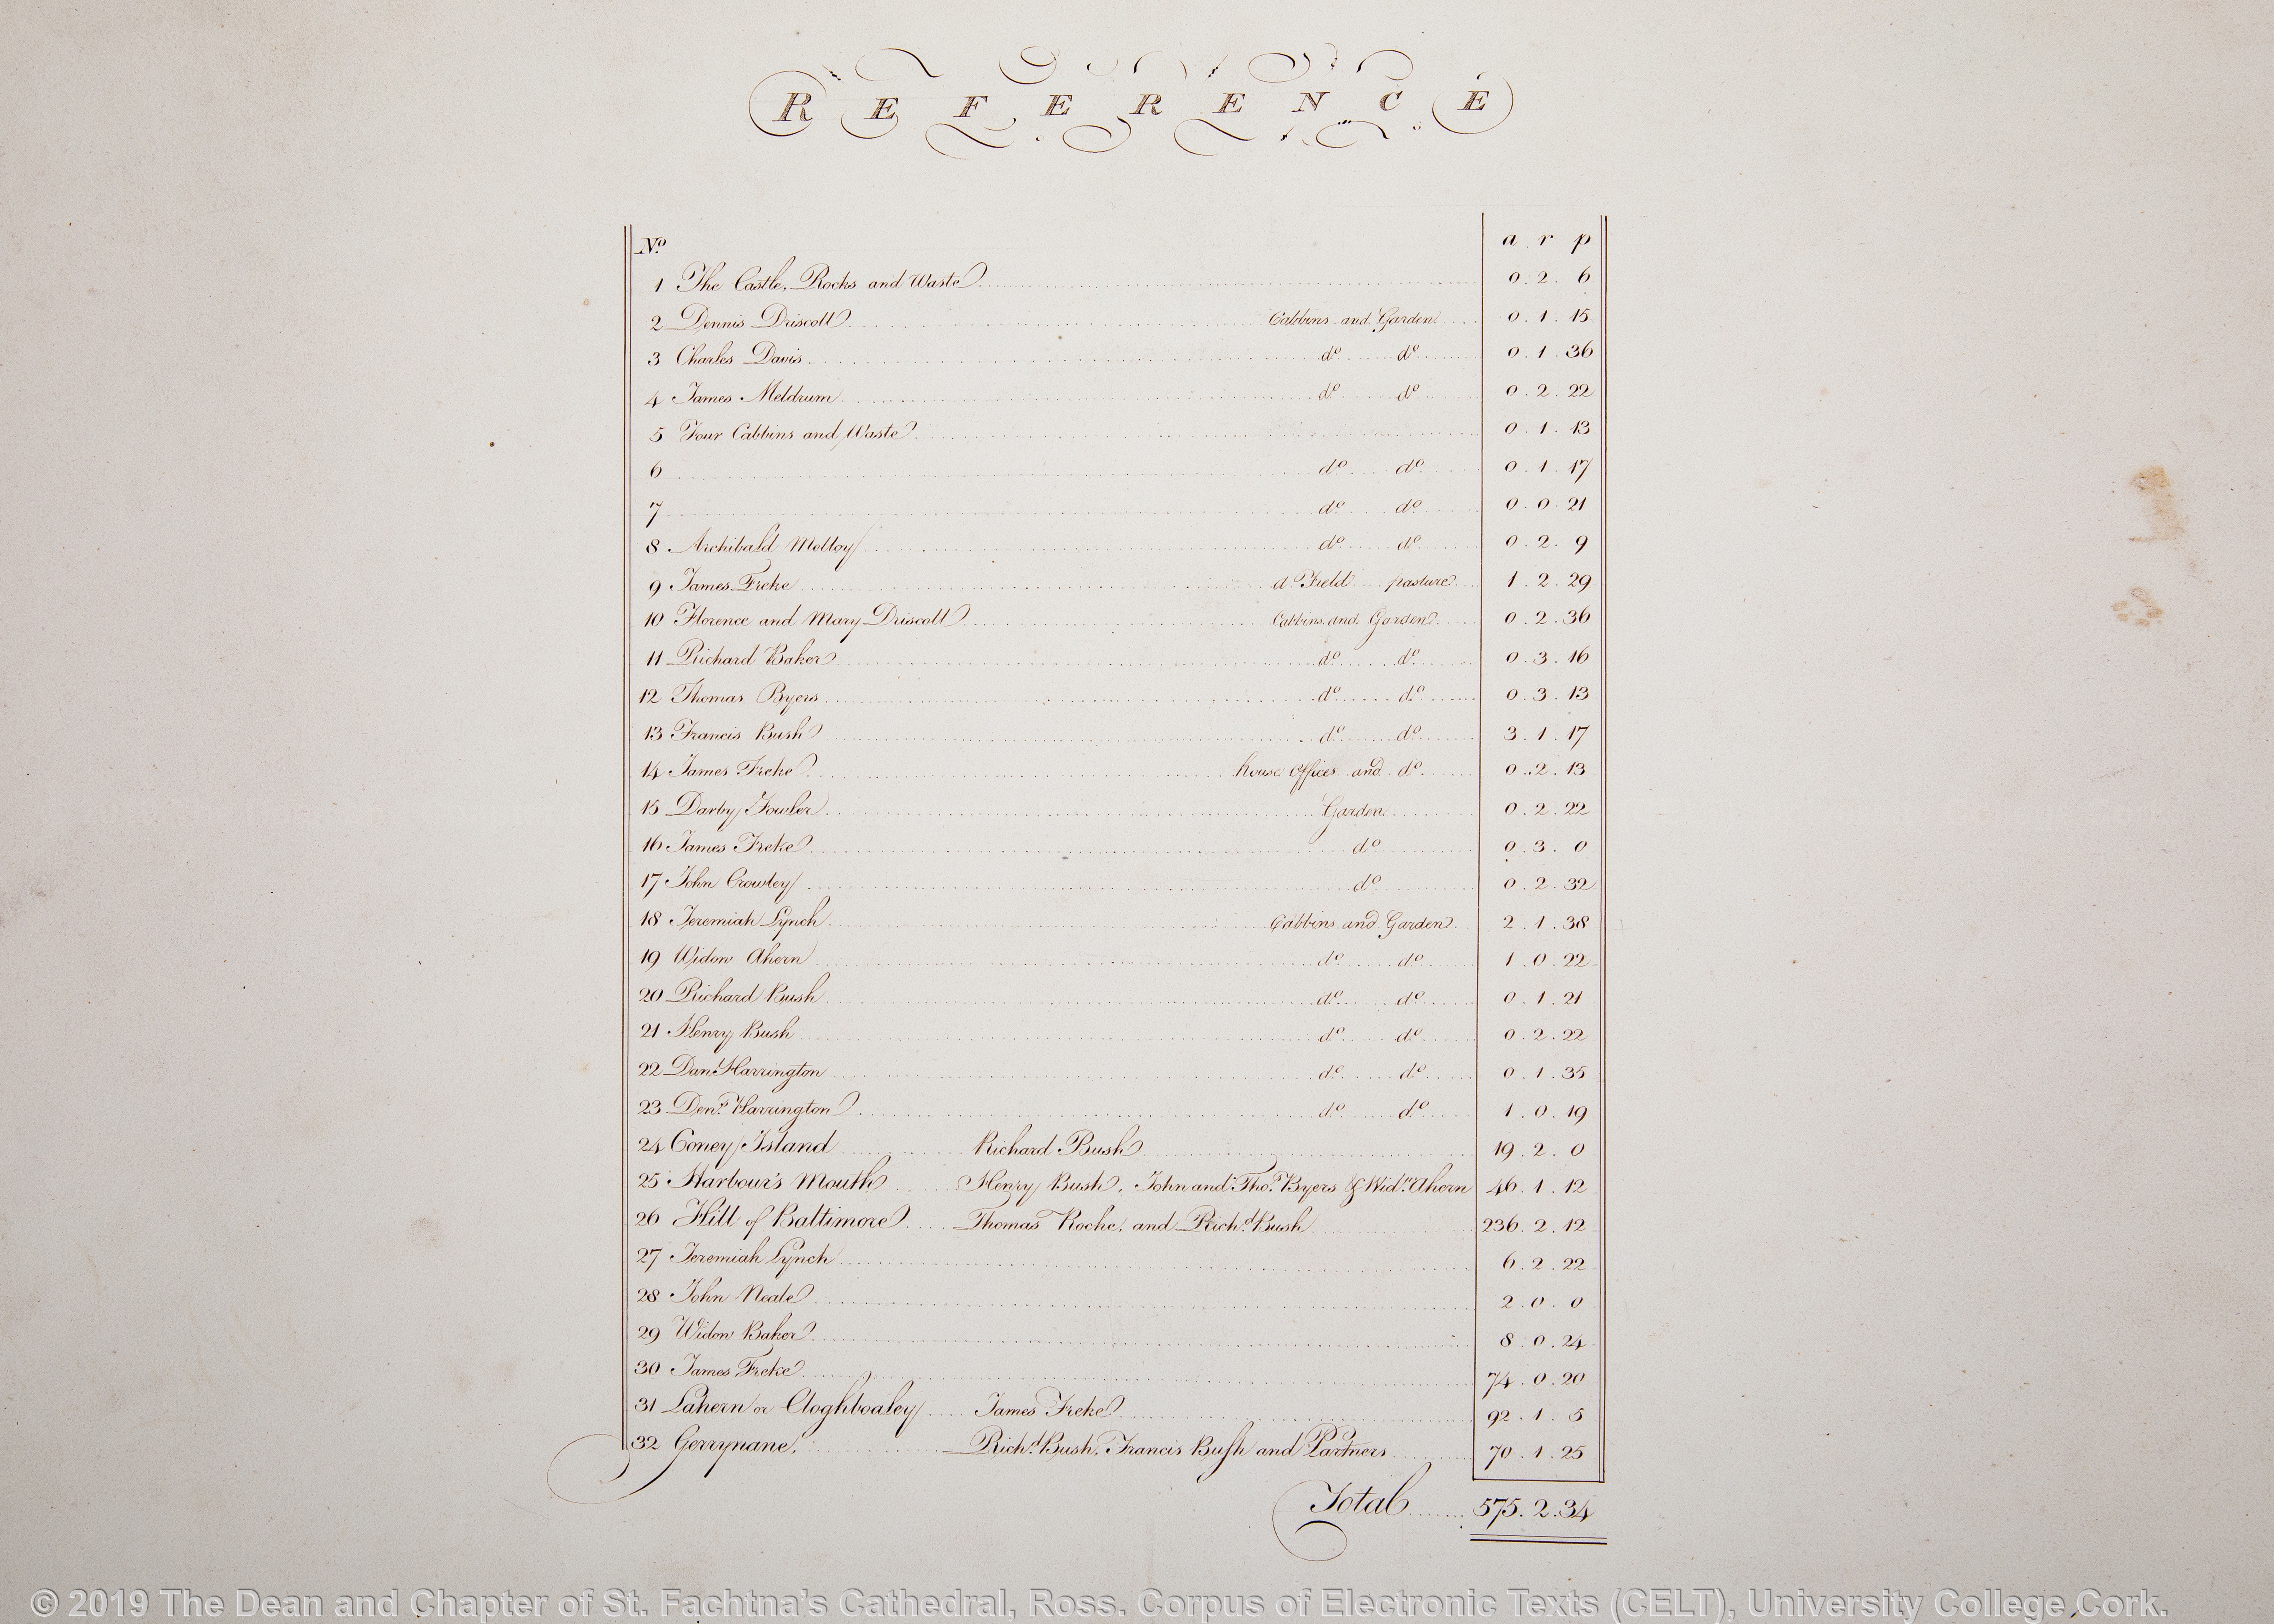 REFERENCE
No. a r p
1 The Castle, Rocks and Waste 0.2.6
2 Dennis Driscoll Cabbins and Garden 0.1.15
3 Charles Davis do. do. 0.1.36
4 James Meldrum do. do. 0.2.22
5 Four Cabbins and Waste 0.1.13
6 do. do. 0.1.17
7 do. do. 0.0.21
8 Archibald Molloy do. do. 0.2.9
9 James Freke a Field pasture 1.2.29
10 Florence and Mary Driscoll Cabbins and Garden 0.2.36
11 Richard Baker do. do. 0.3.16
12 Thomas Byers do. do. 0.3.13
13 Francis Bush do. do. 3.1.17
14 James Freke house offices and do. 0.2.13
15 Darby Fowler Garden 0.2.22
16 James Freke do. 0.3.0
17 John Crowley do. 0.2.32
18 Jeremiah Lynch Cabbins and Garden 2.1.38
19 Widow Ahern do. do. 1.0.22
20 Richard Bush do. do. 0.1.21
21 Henry Bush do. do. 0.2.22
22 Danl. Harrington do. do. 0.1.35
23 Dens. Harrington do. do. 1.0.19
24 Coney Island Richard Bush 19.2.0
25 Harbour's Mouth Henry Bush, John and Thos. Byers & Widw. Ahern 46.1.12
26 Hill of Baltimore Thomas Roche, and Richd. Bush 236.2.12
27 Jeremiah Lynch 6.2.22
28 John Neale 2.0.0
29 Widow Baker 8.0.24
30 James Freke 74.0.20
31 Lahern or Cloghboaley James Freke 92.1.5
32 Gerrynane, Richd. Bush, Francis Bush and Partners 70.1.25
Total 575.2.34
© 2019 The Dean and Chapter of St. Fachtna's Cathedral, Ross. Corpus of Electronic Texts (CELT), University College Cork.